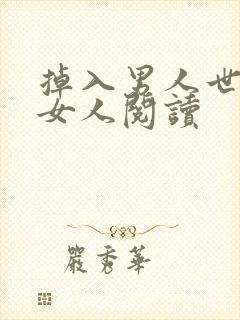 掉入男人世
女人閱讀
嚴秀華